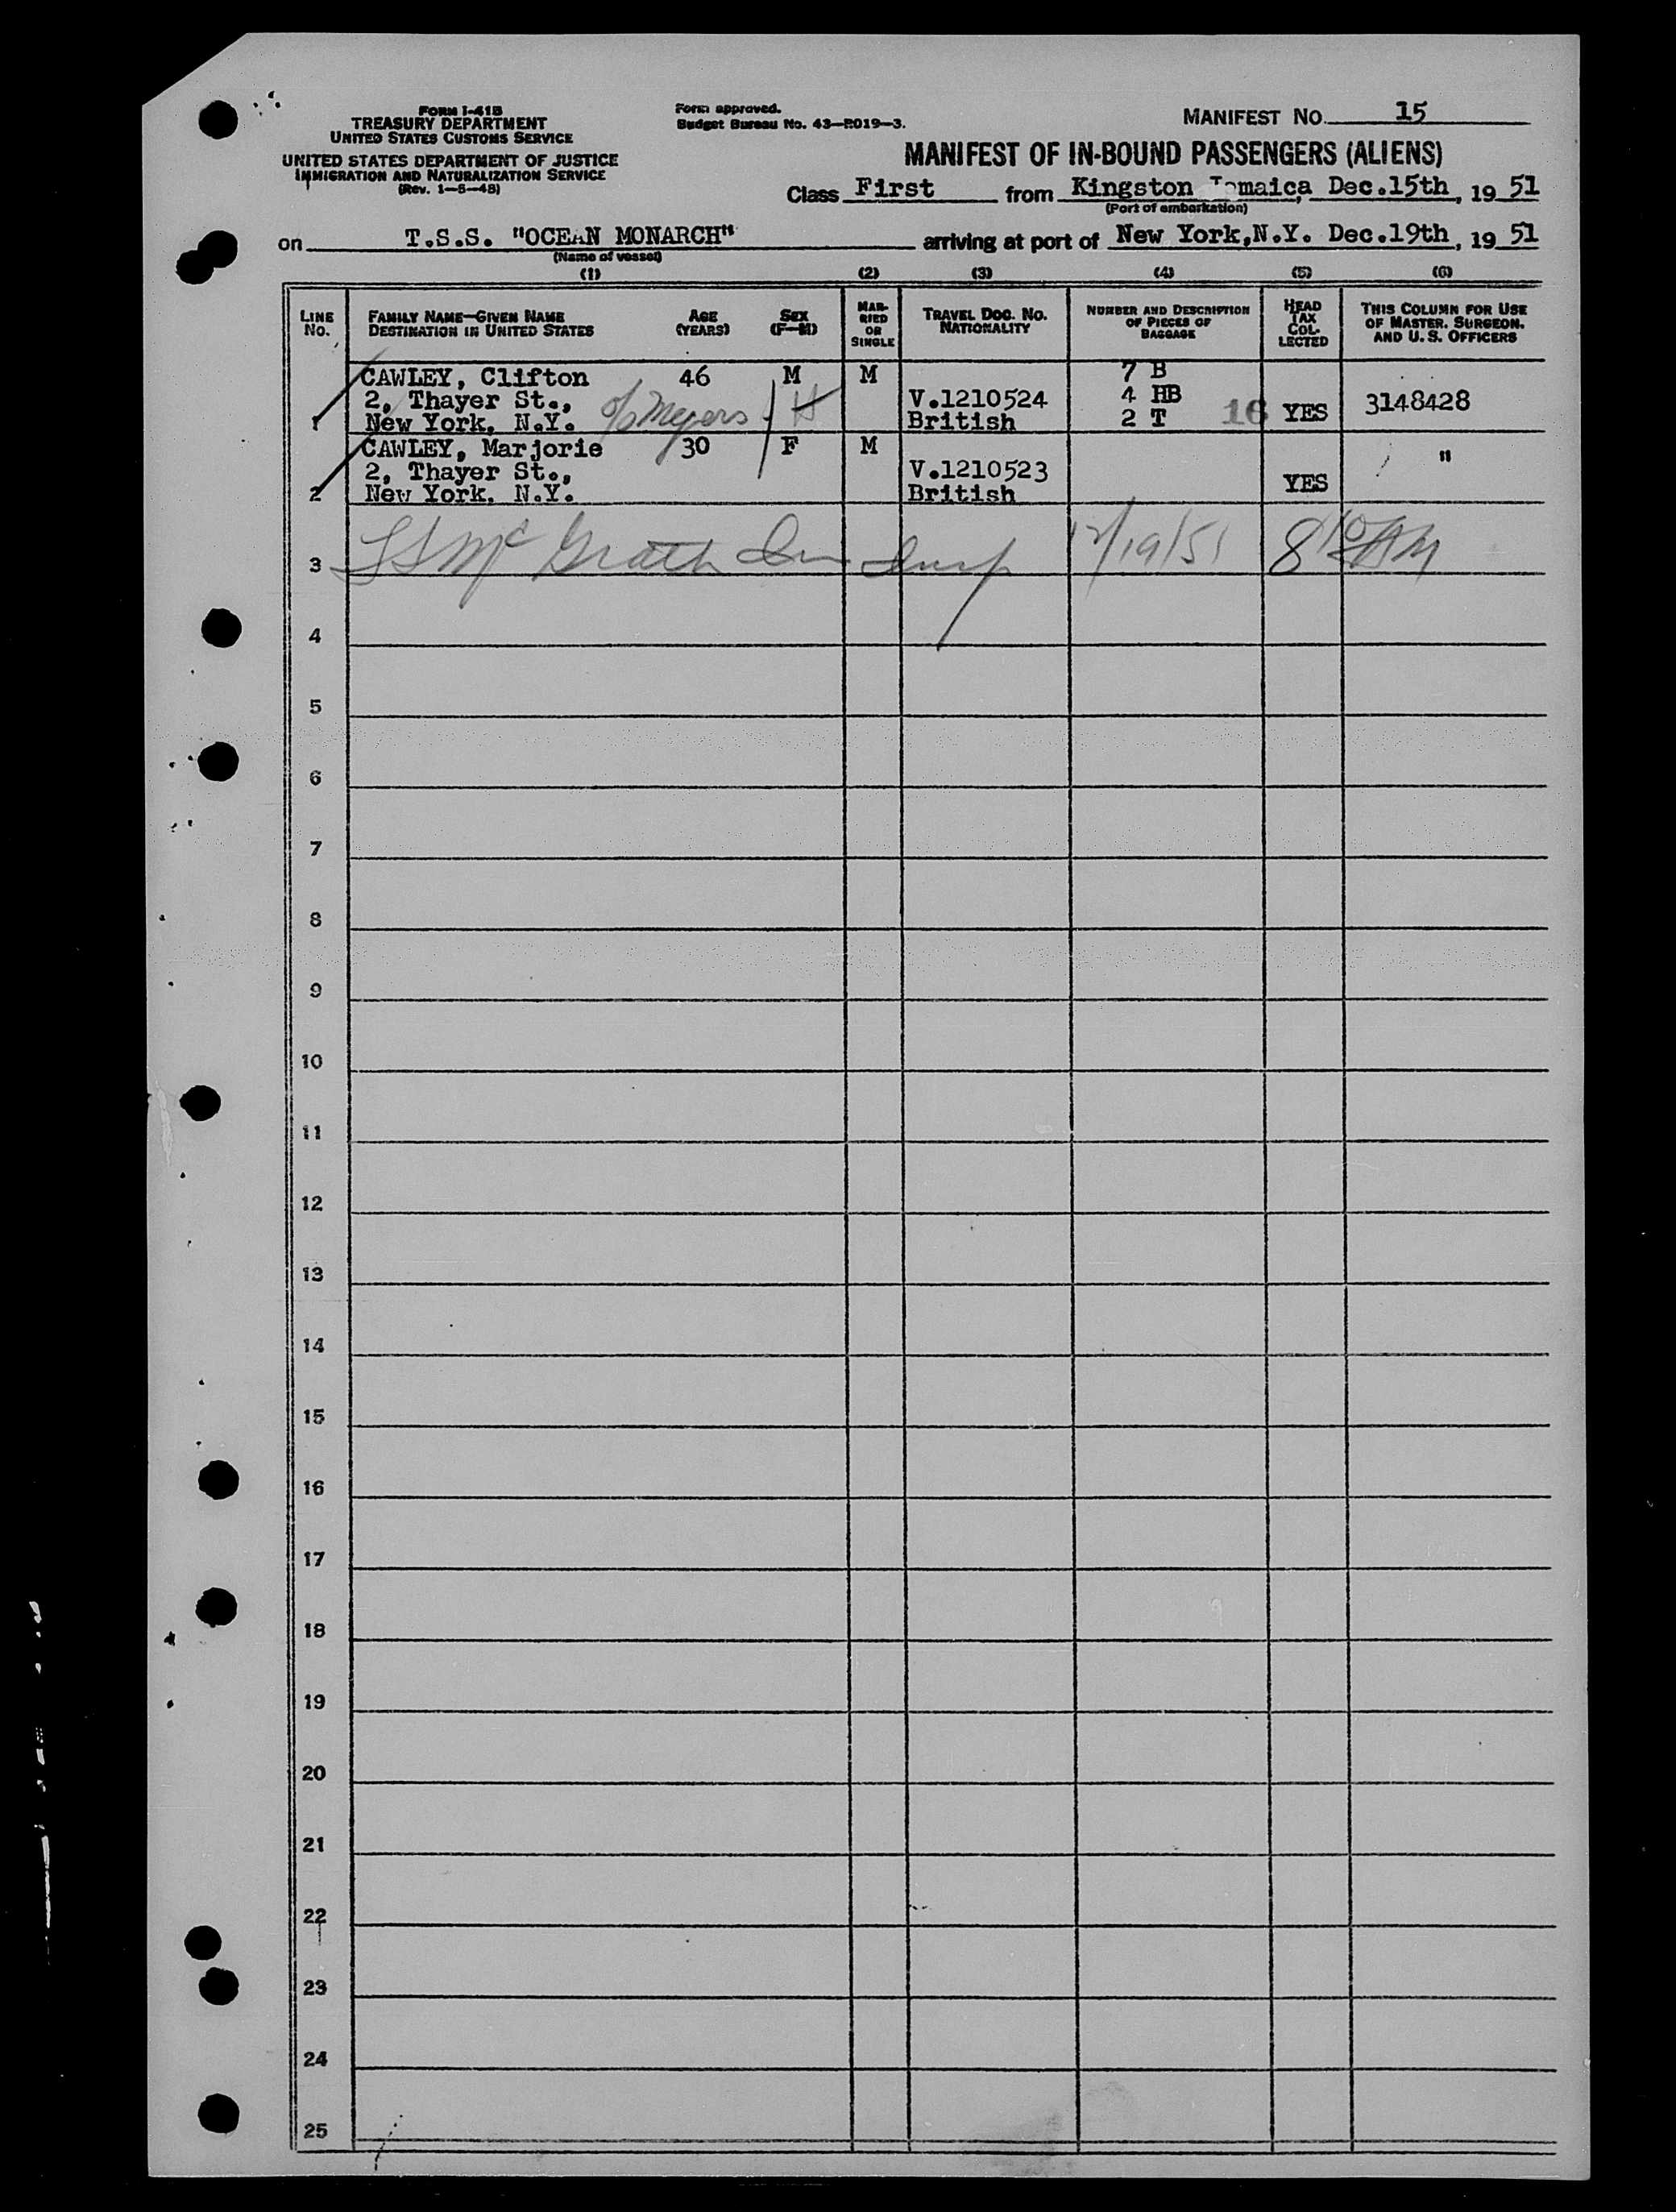 FORM I-41B
TREASURY DEPARTMENT
UNITED STATES CUSTOMS SERVICE
UNITED STATES DEPARTMENT OF JUSTICE
IMMIGRATION AND NATURALIZATION SERVICE
(Rev. 1-5-48)
Form approved.
Budget Bureau No. 43-R019-3.
MANIFEST NO. 15
MANIFEST OF IN-BOUND PASSENGERS (ALIENS)
Class First from Kingston Jamaica, Dec.15th, 19 51
(Port of embarkation)
on T.S.S. "OCEAN MONARCH" arriving at port of New York, N.Y. Dec.19th, 19 51
(Name of vessel)
(1) (2) (3) (4) (5) (6)
LINE No. FAMILY NAME—GIVEN NAME DESTINATION IN UNITED STATES AGE (YEARS) SEX (F—M) MARRIED OR SINGLE TRAVEL DOC. NO. NATIONALITY NUMBER AND DESCRIPTION OF PIECES OF BAGGAGE HEAD TAX COLLECTED THIS COLUMN FOR USE OF MASTER, SURGEON, AND U. S. OFFICERS
CAWLEY, Clifton 46 M M 7 B
2, Thayer St., V.1210524 4 HB 3148428
1 New York, N.Y. c/o Meyers British 2 T 16 YES
CAWLEY, Marjorie 30 F M "
2, Thayer St., V.1210523
2 New York, N.Y. British YES
3 McGrath Imm Insp 12/19/51 8 10 AM
4
5
6
7
8
9
10
11
12
13
14
15
16
17
18
19
20
21
22
23
24
25